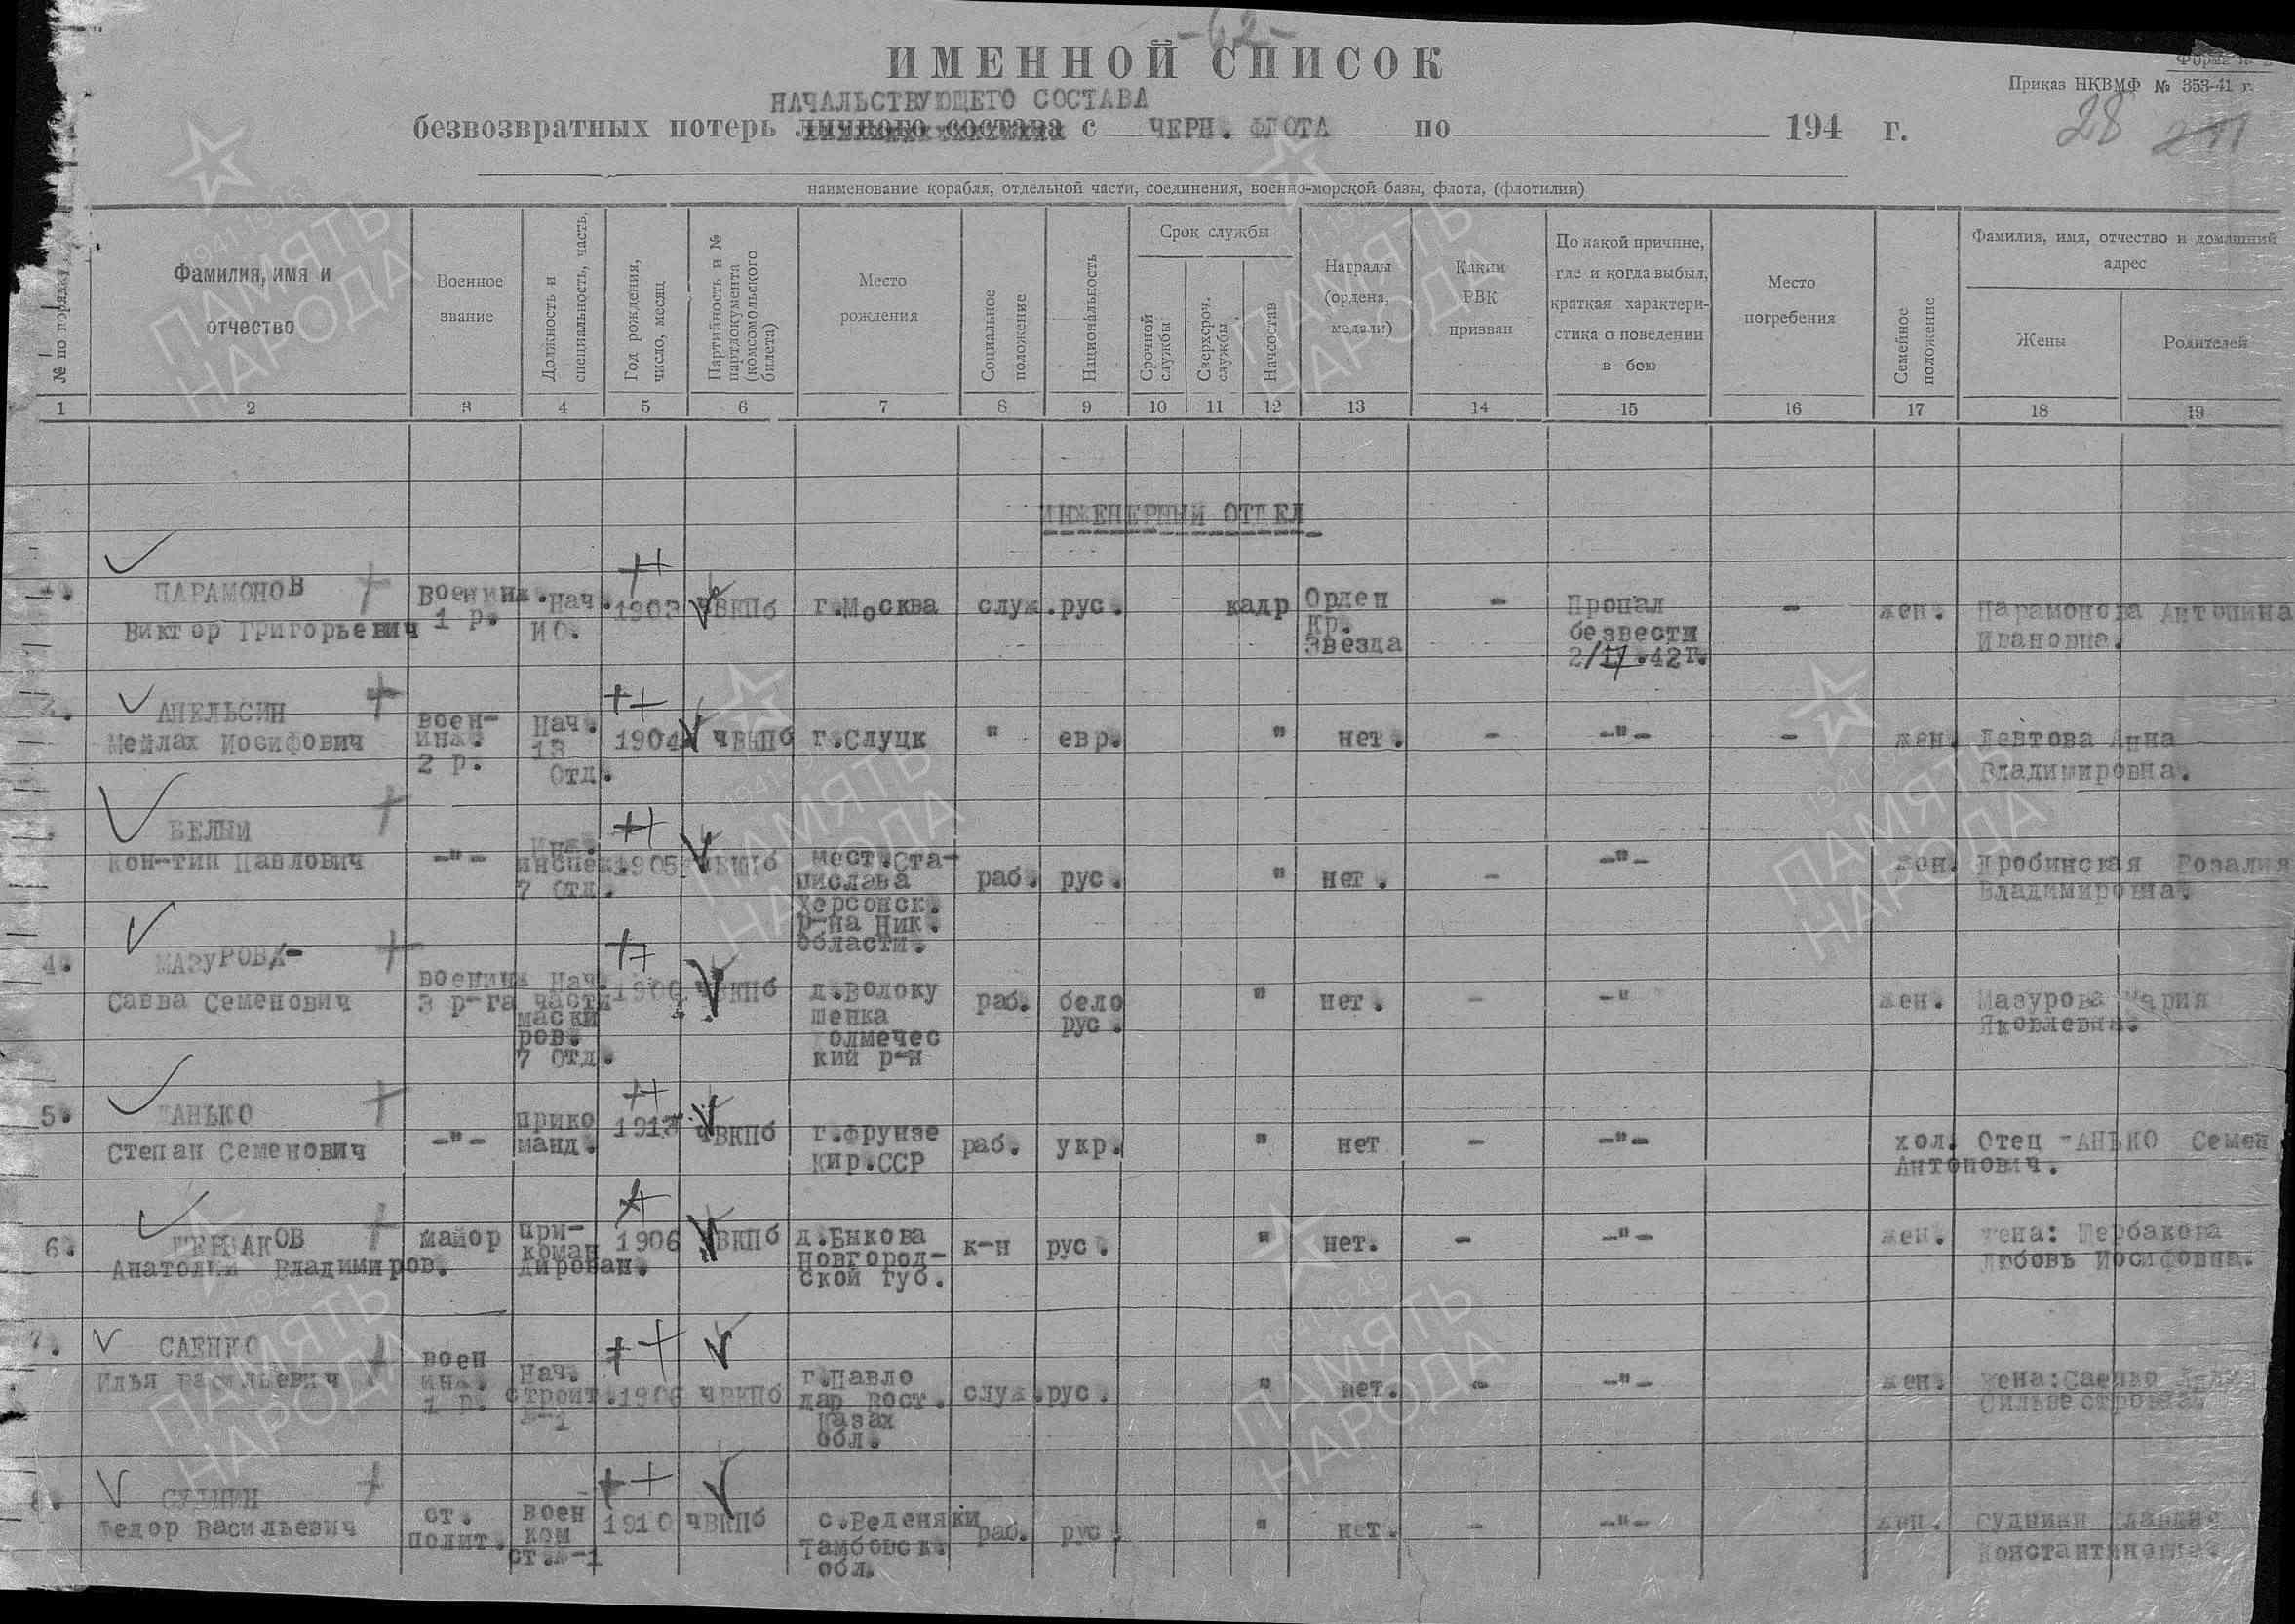 -62-
ИМЕННОЙ СПИСОК
Форма №
Приказ НКВМФ № 353-41 г.
НАЧАЛЬСТВУЮЩЕГО СОСТАВА
безвозвратных потерь личного состава с ЧЕРН. ФЛОТА по 194 г.
28
наименование корабля, отдельной части, соединения, военно-морской базы, флота, (флотилии)
№ по порядку
Фамилия, имя и отчество
Военное звание
Должность и специальность, часть,
Год рождения, число, месяц
Партийность и № партдокумента (комсомольского билета)
Место рождения
Социальное положение
Национальность
Срок службы
Срочной службы
Сверхсроч. службы
Начсостав
Награды (ордена, медали)
Каким РВК призван
По какой причине, где и когда выбыл, краткая характеристика о поведении в бою
Место погребения
Семейное положение
Фамилия, имя, отчество и домашний адрес
Жены
Родителей
1 2 3 4 5 6 7 8 9 10 11 12 13 14 15 16 17 18 19
ИНЖЕНЕРНЫЙ ОТДЕЛ
ПАРАМОНОВ Виктор Григорьевич Военинж. 1 р. Нач. ИО. 1903 чВКПб г.Москва служ. рус. кадр Орден Кр. Звезда - Пропал безвести 2/ .42г. - жен. Парамонова Антонина Ивановна.
АПЕЛЬСИН Мейлах Иосифович воен-инж. 2 р. Нач. 13 Отд. 1904 чВКПб г.Слуцк " евр. " нет. - -"- - жен. Левтова Анна Владимировна.
БЕЛЫЙ Кон-тин Павлович -"- Инж. инспек. 7 Отд. 1905 чВКПб мест.Станислава Херсонск. р-на Ник. области. раб. рус. " нет. - -"- жен. Дробинская Розалия Владимировна.
4. МАЗУРОВ Савва Семенович военинж 3 р-га Нач. части маскиров. 7 Отд. чВКПб д.Волоку шенка олмечес кий р-н раб. бело рус. " нет. - -" жен. Мазурова Мария Яковлевна.
5. АНЬКО Степан Семенович -"- прико манд. чВКПб г.Фрунзе Кир.ССР раб. укр. " нет - -"- хол. Отец АНЬКО Семен Антонович.
6. ЩЕРБАКОВ Анатолий Владимиров. майор при-коман дирован. 1906 ВКПб д.Быкова Новгород-ской губ. к-н рус. " нет. - -"- жен. жена: Щербакова Любовь Иосифовна.
7. САЕНКО Илья Васильевич воен инж. 1 р. Нач. строит. №-1 1906 чВКПб г.Павло дар Вост. Казах обл. служ. рус. " нет. - -"- жен. жена:Саенко Сильвестровна.
СУДНИН Федор Васильевич ст. полит. воен ком ст.№-1 1910 чВКПб с.Веденяки Тамбовск. обл. раб. рус. " нет. - -"- жен. Суднини Клавдия Константиновна.
1941 1945
ПАМЯТЬ
НАРОДА